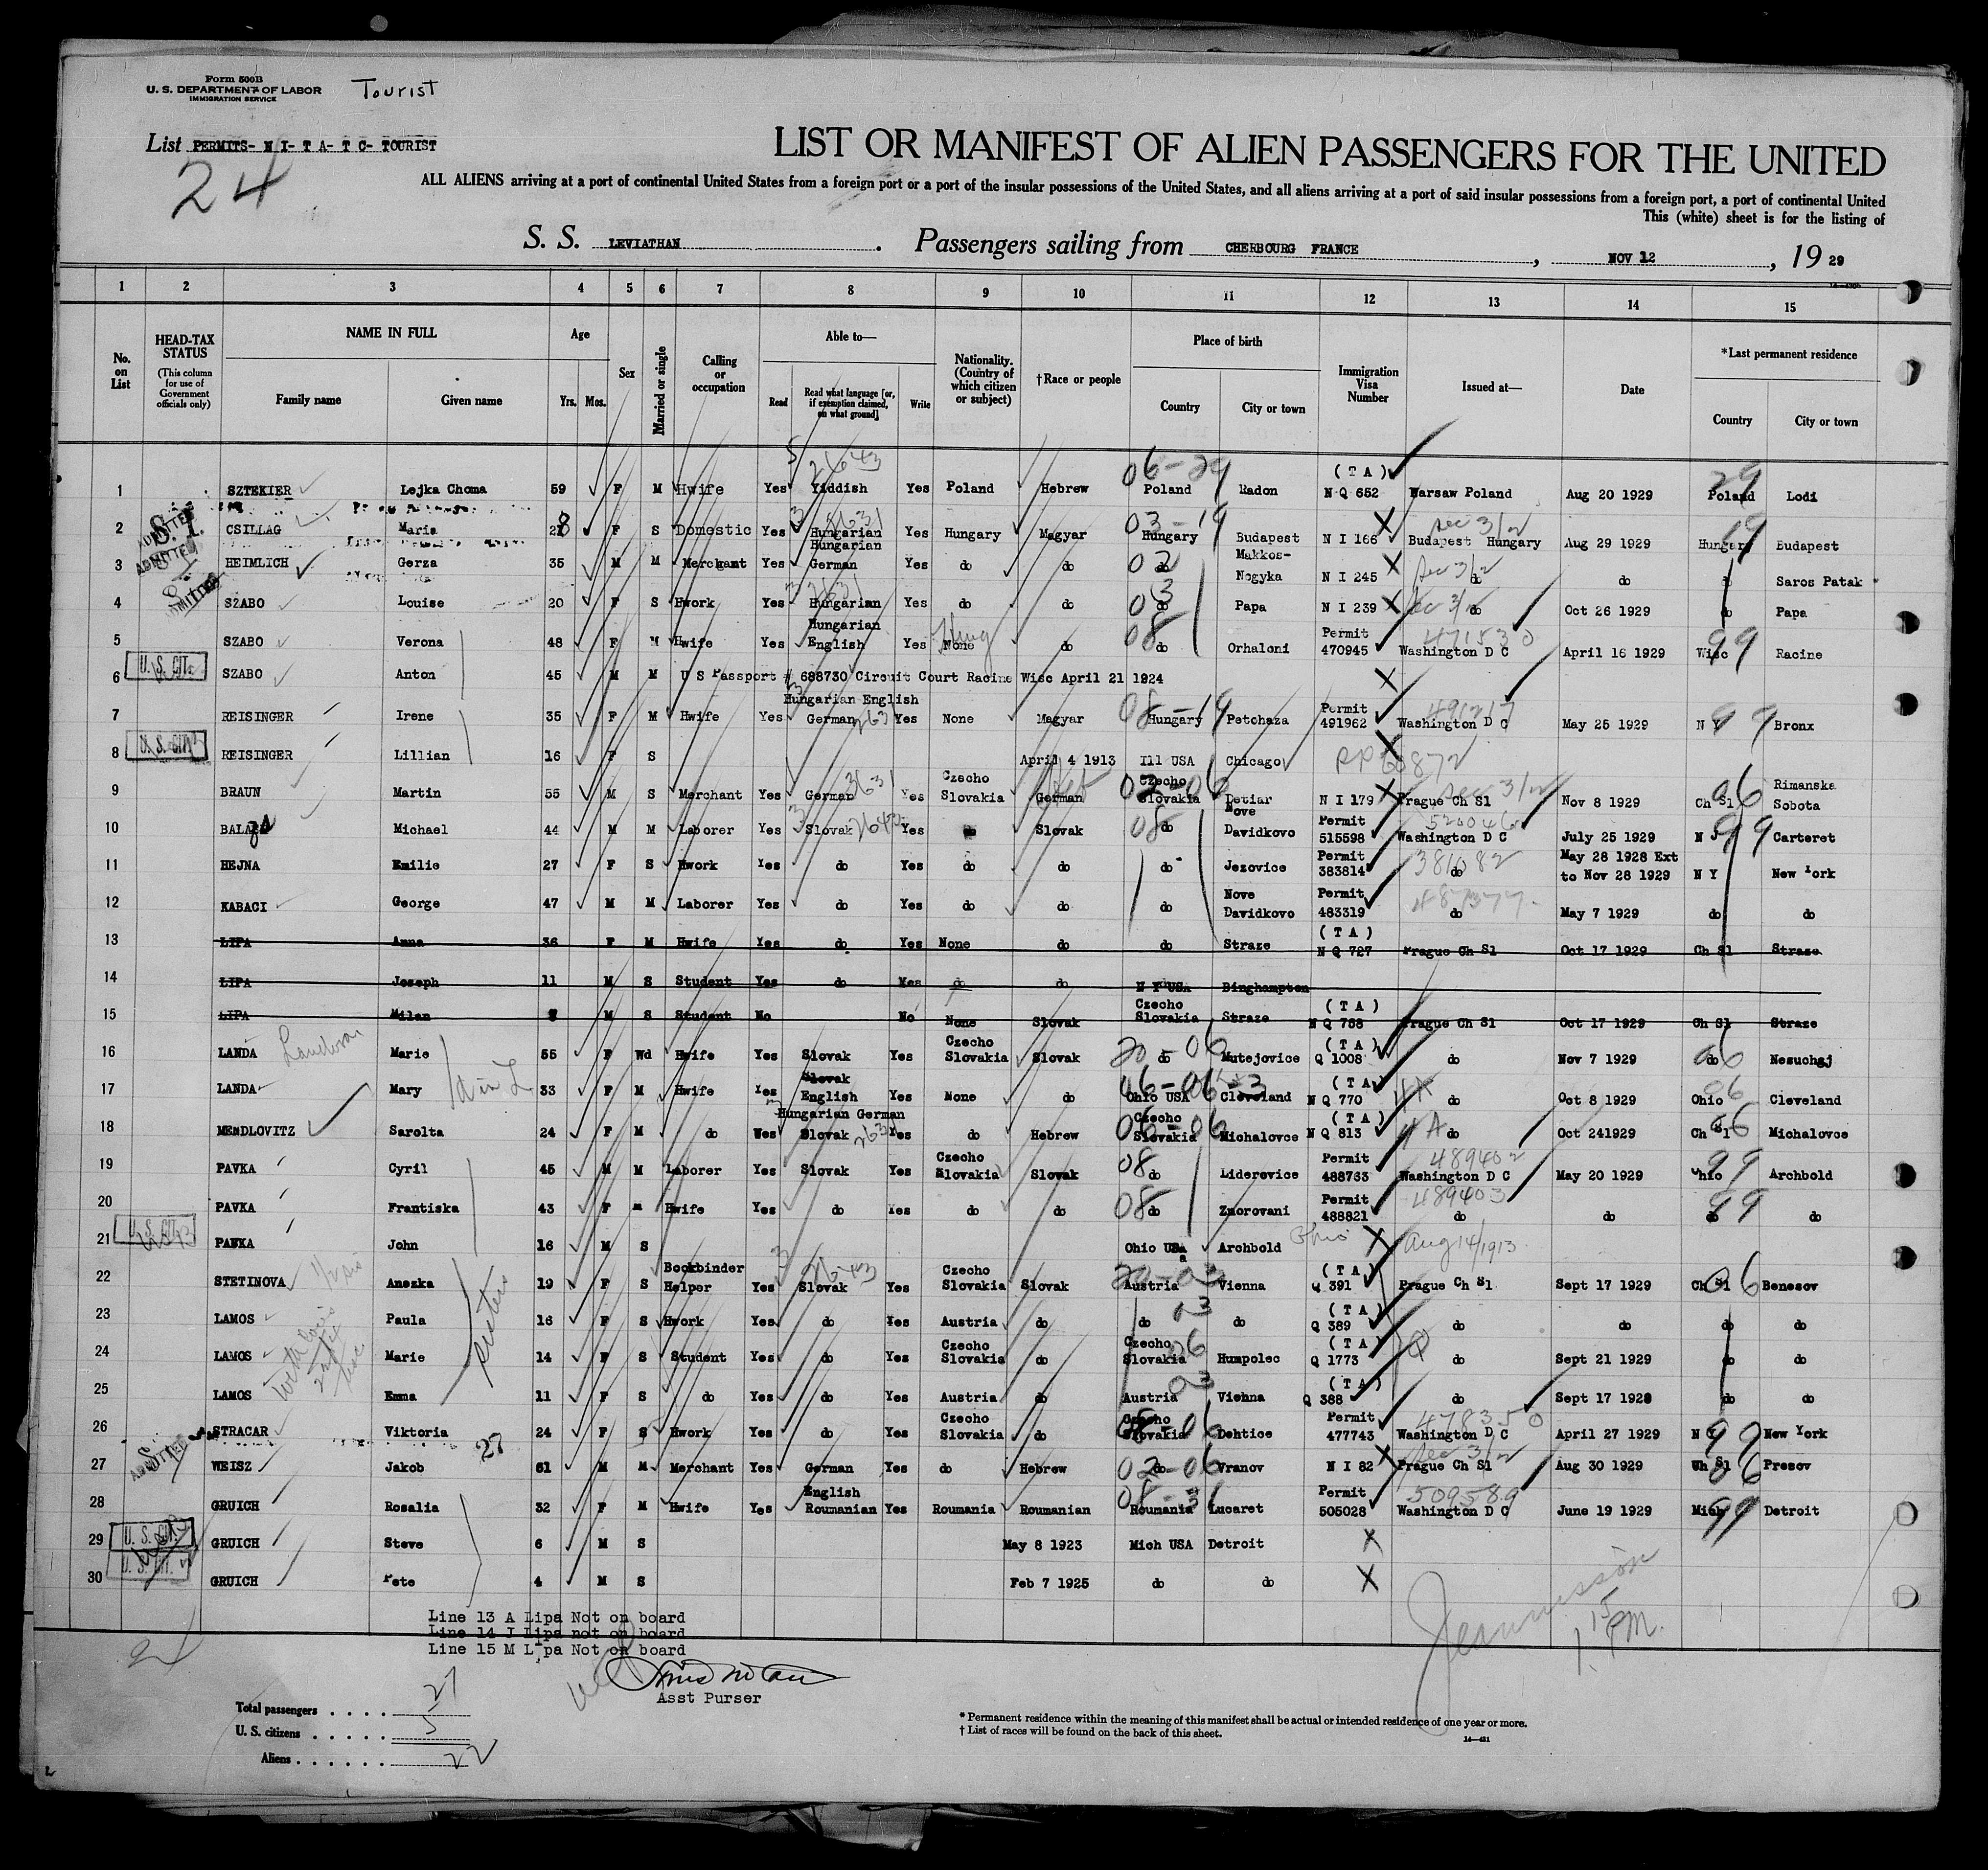 Form 500B
U. S. DEPARTMENT OF LABOR
IMMIGRATION SERVICE
Tourist
List PERMITS- N I- T A- T C- TOURIST
24
LIST OR MANIFEST OF ALIEN PASSENGERS FOR THE UNITED
ALL ALIENS arriving at a port of continental United States from a foreign port or a port of the insular possessions of the United States, and all aliens arriving at a port of said insular possessions from a foreign port, a port of continental United
This (white) sheet is for the listing of
S. S. LEVIATHAN . Passengers sailing from CHERBOURG FRANCE , NOV 12 , 19 29
1 2 3 4 5 6 7 8 9 10 11 12 13 14 15
No. on List
HEAD-TAX STATUS (This column for use of Government officials only)
NAME IN FULL Family name Given name
Age Yrs. Mos.
Sex
Married or single
Calling or occupation
Able to— Read Read what language [or, if exemption claimed, on what ground] Write
Nationality. (Country of which citizen or subject)
†Race or people
Place of birth Country City or town
Immigration Visa Number
Issued at—
Date
*Last permanent residence Country City or town
1 SZTEKIER Lejka Choma 59 F M Hwife Yes Yiddish Yes Poland Hebrew Poland Radon (T A) N Q 652 Warsaw Poland Aug 20 1929 Poland Lodi
2 CSILLAG Maria 28 F S Domestic Yes Hungarian Yes Hungary Magyar Hungary Budapest N I 166 Budapest Hungary Aug 29 1929 Hungary Budapest
3 HEIMLICH Gerza 35 M M Merchant Yes Hungarian German Yes do do do Makkos-Nogyka N I 245 do do do Saros Patak
4 SZABO Louise 20 F S Hwork Yes Hungarian Yes do do do Papa N I 239 do Oct 26 1929 do Papa
5 SZABO Verona 48 F M Hwife Yes Hungarian English Yes None do do Orhaloni Permit 470945 Washington D C April 16 1929 Wisc Racine
U. S. CIT.
6 SZABO Anton 45 M M U S Passport # 688730 Circuit Court Racine Wisc April 21 1924
7 REISINGER Irene 35 F M Hwife Yes Hungarian English German Yes None Magyar Hungary Petohaza Permit 491962 Washington D C May 25 1929 N Y Bronx
U. S. CIT.
8 REISINGER Lillian 16 F S April 4 1913 Ill USA Chicago
9 BRAUN Martin 55 M S Merchant Yes German Yes Czecho Slovakia German Czecho Slovakia Detiar N I 179 Prague Ch Sl Nov 8 1929 Ch Sl Rimanska Sobota
10 Michael 44 M M Laborer Yes Slovak Yes do Slovak do Nove Davidkovo Permit 515598 Washington D C July 25 1929 N J Carteret
11 HEJNA Emilie 27 F S Hwork Yes do Yes do do do Jezovice Permit 383814 do May 28 1928 Ext to Nov 28 1929 N Y New York
12 KABACI George 47 M M Laborer Yes do Yes do do do Nove Davidkovo Permit 483319 do May 7 1929 do do
13 LIPA Anna 36 F M Hwife Yes do Yes None do do Straze (T A) N Q 727 Prague Ch Sl Oct 17 1929 Ch Sl Straze
14 LIPA Joseph 11 M S Student Yes do Yes do do N Y USA Binghampton
15 LIPA Milan M S Student No No None Slovak Czecho Slovakia Straze (T A) N Q 758 Prague Ch Sl Oct 17 1929 Ch Sl Straze
16 LANDA Marie 55 F Wd Hwife Yes Slovak Yes Czecho Slovakia Slovak do Mutejovice (T A) Q 1008 do Nov 7 1929 do Nesuchgj
17 LANDA Mary 33 F M Hwife Yes Slovak English Yes None do Ohio USA Cleveland (T A) N Q 770 do Oct 8 1929 Ohio Cleveland
18 MENDLOVITZ Sarolta 24 F M do Yes Hungarian German Slovak Yes do Hebrew Czecho Slovakia Michalovce (T A) N Q 813 do Oct 241929 Ch Sl Michalovce
19 PAVKA Cyril 45 M M Laborer Yes Slovak Yes Czecho Slovakia Slovak do Liderovice Permit 488763 Washington D C May 20 1929 Ohio Archbold
20 PAVKA Frantiska 43 F M Hwife Yes do Yes do do do Znorovani Permit 488821 do do do do
U. S. CIT.
21 John 16 M S Ohio USA Archbold Ohio Aug 14/1913
22 STETINOVA Anezka 19 F S Bookbinder Helper Yes Slovak Yes Czecho Slovakia Slovak Austria Vienna (T A) Q 391 Prague Ch Sl Sept 17 1929 Ch Sl Benesov
23 LAMOS Paula 16 F S Hwork Yes do Yes Austria do do do (T A) Q 389 do do do do
24 LAMOS Marie 14 F S Student Yes do Yes Czecho Slovakia do Czecho Slovakia Humpolec (T A) Q 1773 do Sept 21 1929 do do
sisters
25 LAMOS Emma 11 F S do Yes do Yes Austria do Austria Vienna (T A) Q 388 do Sept 17 1928 do do
26 STRACAR Viktoria 24 F S Hwork Yes do Yes Czecho Slovakia do Czecho Slovakia Dehtice Permit 477743 Washington D C April 27 1929 N Y New York
27
27 WEISZ Jakob 61 M M Merchant Yes German Yes do Hebrew do Vranov N I 82 Prague Ch Sl Aug 30 1929 Ch Sl Presov
28 GRUICH Rosalia 32 F M Hwife Yes English Roumanian Yes Roumania Roumanian Roumania Lucaret Permit 505028 Washington D C June 19 1929 Mich Detroit
U. S. CIT.
29 GRUICH Steve 6 M S May 8 1923 Mich USA Detroit
U. S. CIT.
30 GRUICH Pete 4 M S Feb 7 1925 do do
Line 13 A Lipa Not on board
Line 14 J Lipa not on board
Line 15 M Lipa Not on board
Asst Purser
1 15 PM.
Total passengers . . . . 27
U. S. citizens . . . . . 5
Aliens . . . . . . 22
* Permanent residence within the meaning of this manifest shall be actual or intended residence of one year or more.
† List of races will be found on the back of this sheet.